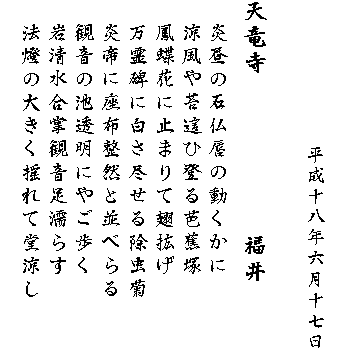 平成十八年六月十七日
天竜寺　福井
炎昼の石仏唇の動くかに
涼風や苔這ひ登る芭蕉塚
鳳蝶花に止まりて翅拡げ
万霊碑に白さ尽せる除虫菊
炎帝に座布整然と並べらる
観音の池透明にやご歩く
岩清水合掌観音足濡らす
法燈の大きく揺れて堂涼し